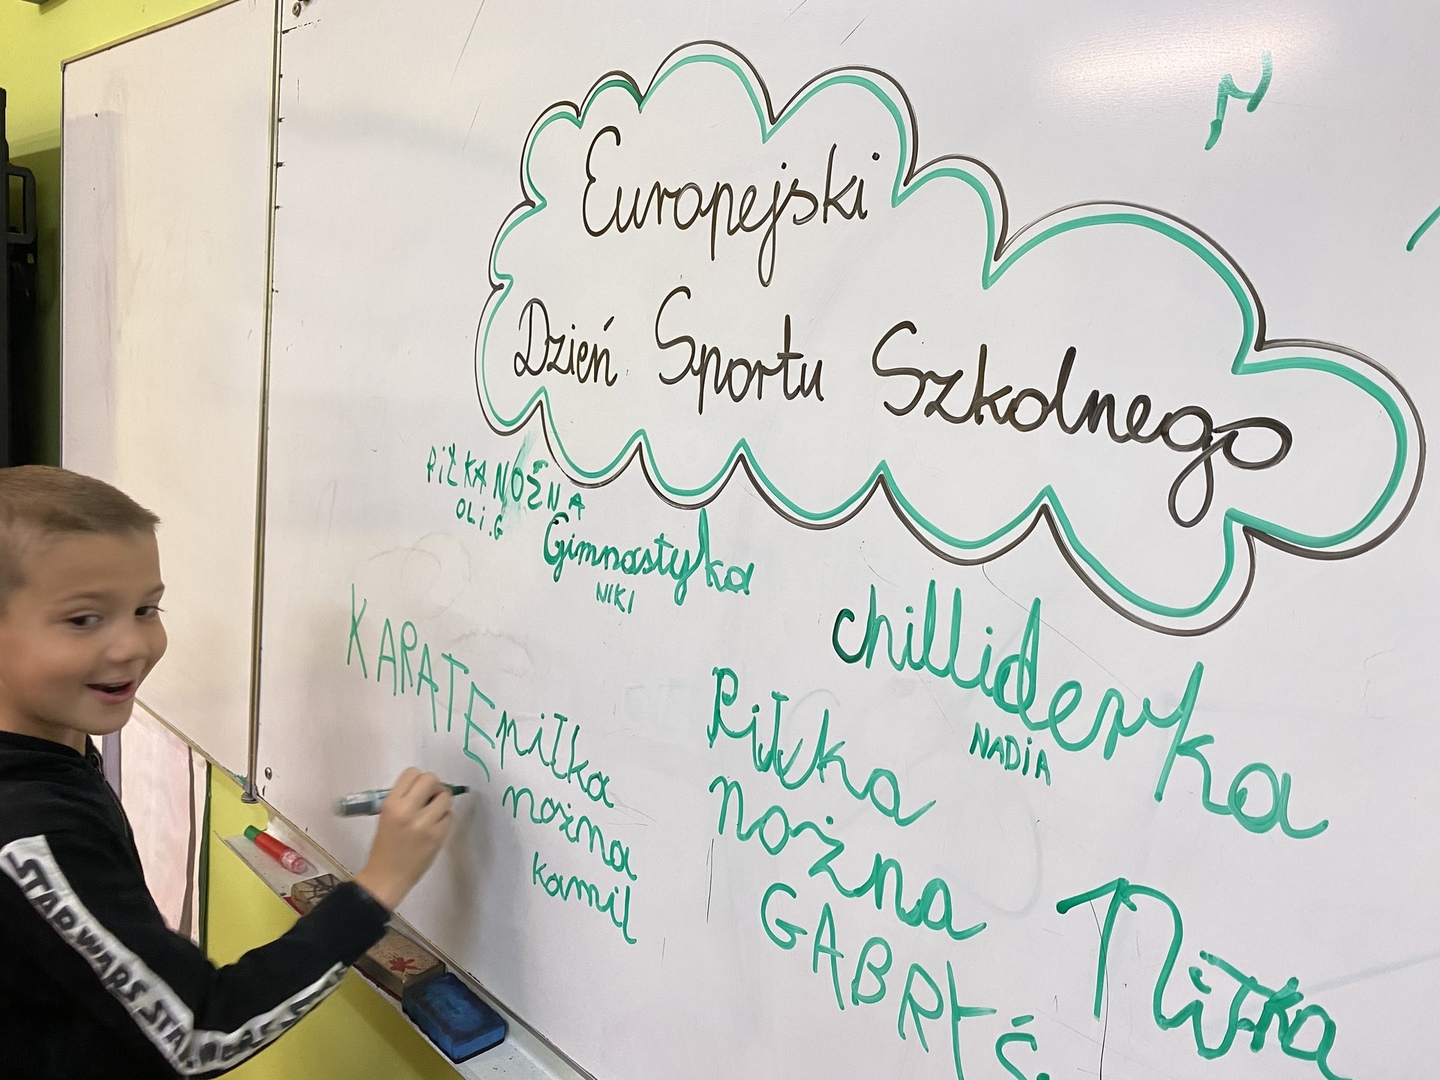 Europejski
Dzień Sportu Szkolnego
PiŁKA NOŻNA
OLi.G
Gimnastyka
NIKI
chilliderka
NADiA
KARATE
piłka
nożna
kamil
Piłka
nożna
GABRYŚ.
Piłka
N
STAR WARS STAR
WARS STAR